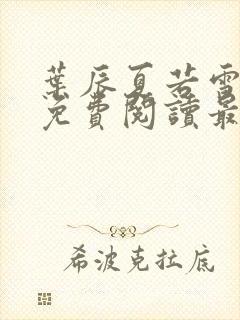 葉辰夏若雪
免費閱讀最
希波克拉底